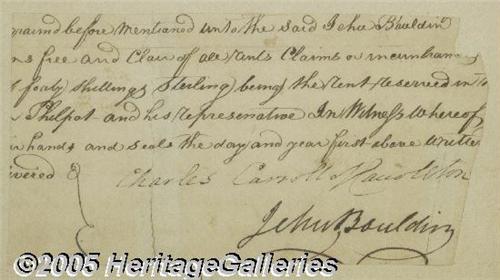 before Mentioned unto the said Jehu Bouldin
free and Clear of all Rents Claims or incumbrances
forty Shillings Sterling being the Rent reserved in
Philpot and his representative In Witness Whereof
hands and seals the day and year first above written
Charles Carroll of Carrollton
Jehu Bouldin
©2005 HeritageGalleries